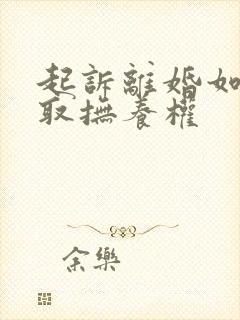 起訴離婚如
取撫養權
余樂